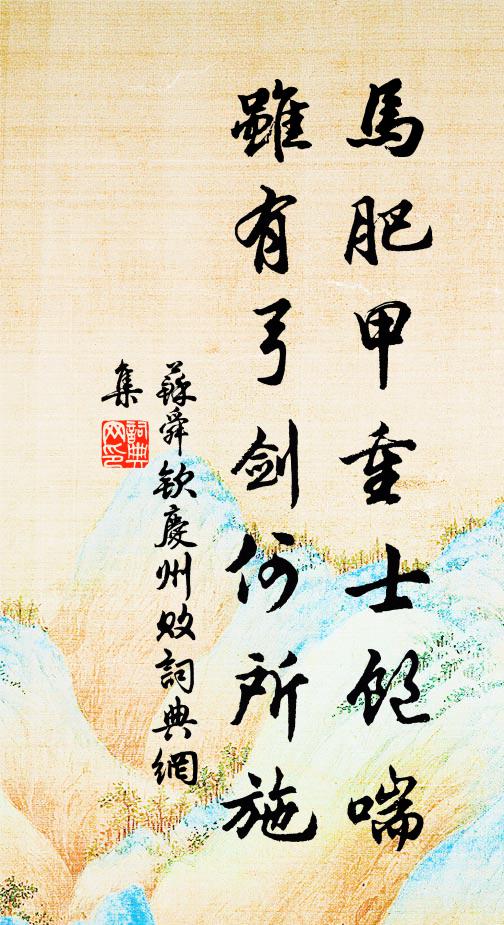 馬肥甲重士飽喘
雖有弓劍何所施
蘇舜欽慶州敗詞典網
集
詞典
网印